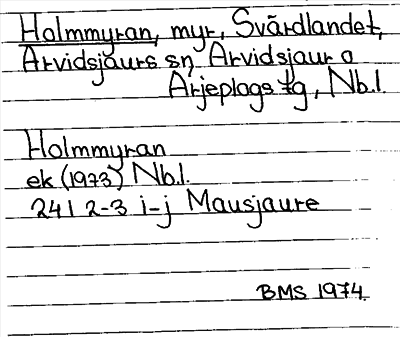 Holmmyran, myr, Svärdlandet,
Arvidsjaurs sn, Arvidsjaur o
Arjeplogs tg, Nb.l.
Holmmyran
ek (1973) Nb.l.
241 2-3 i-j Mausjaure
BMS 1974.